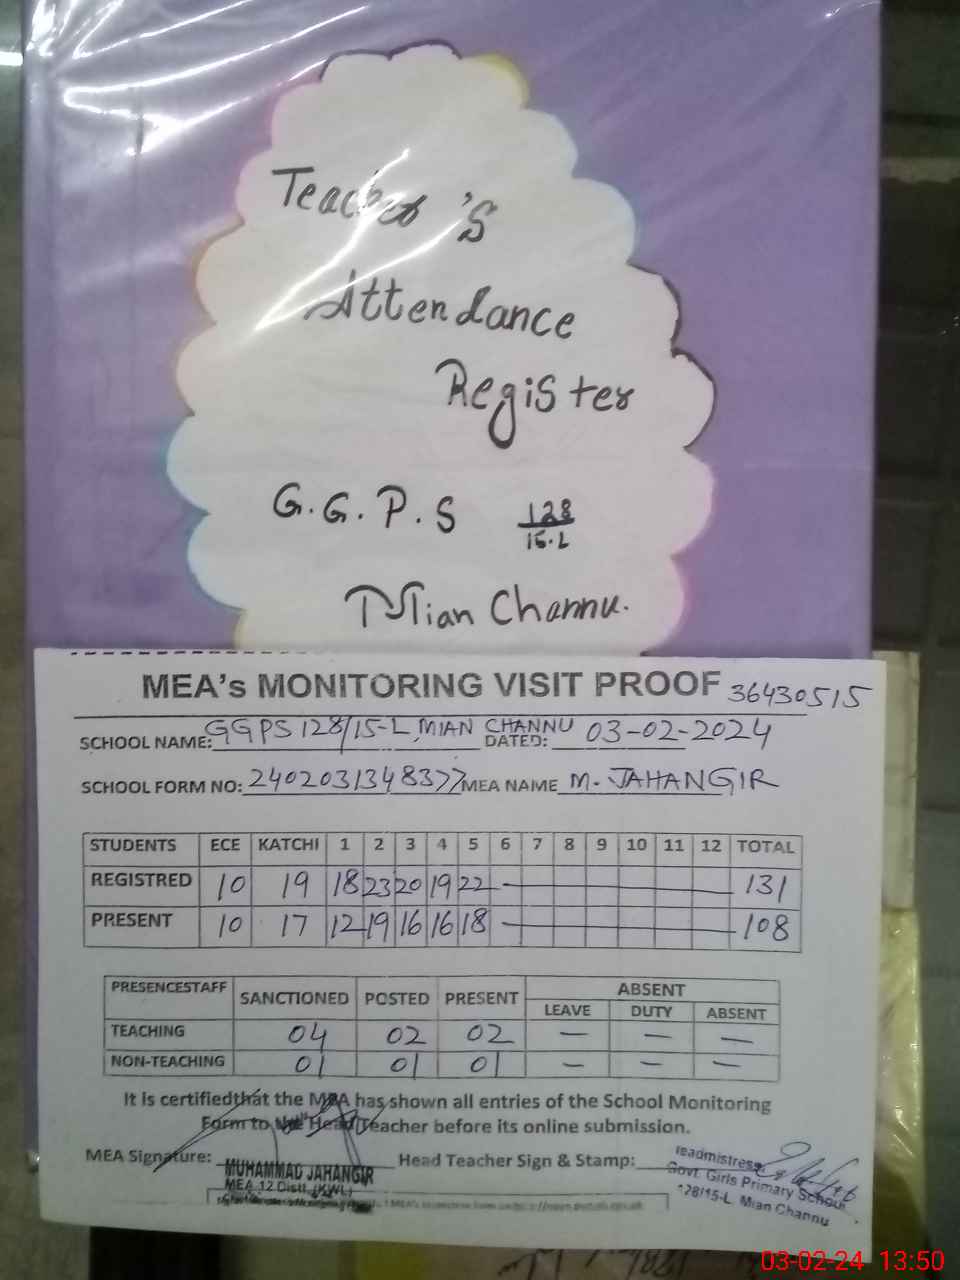 Teacher's
Attendance
Register
G.G.P.S 128/15.L
Mian Channu.
MEA's MONITORING VISIT PROOF 36430515
SCHOOL NAME: GGPS 128/15-L, MIAN CHANNU DATED: 03-02-2024
SCHOOL FORM NO: 2402031348377 MEA NAME M. JAHANGIR
STUDENTS ECE KATCHI 1 2 3 4 5 6 7 8 9 10 11 12 TOTAL
REGISTRED 10 19 18 23 20 19 22 — 131
PRESENT 10 17 12 19 16 16 18 — 108
PRESENCESTAFF SANCTIONED POSTED PRESENT ABSENT
LEAVE DUTY ABSENT
TEACHING 04 02 02 — — —
NON-TEACHING 01 01 01 — — —
It is certifiedthat the MEA has shown all entries of the School Monitoring
Form to the Head Teacher before its online submission.
MEA Signature: Head Teacher Sign & Stamp:
MUHAMMAD JAHANGIR
MEA 12 Distt. (KWL)
Headmistress
Govt. Girls Primary School
128/15-L Mian Channu
03-02-24 13:50